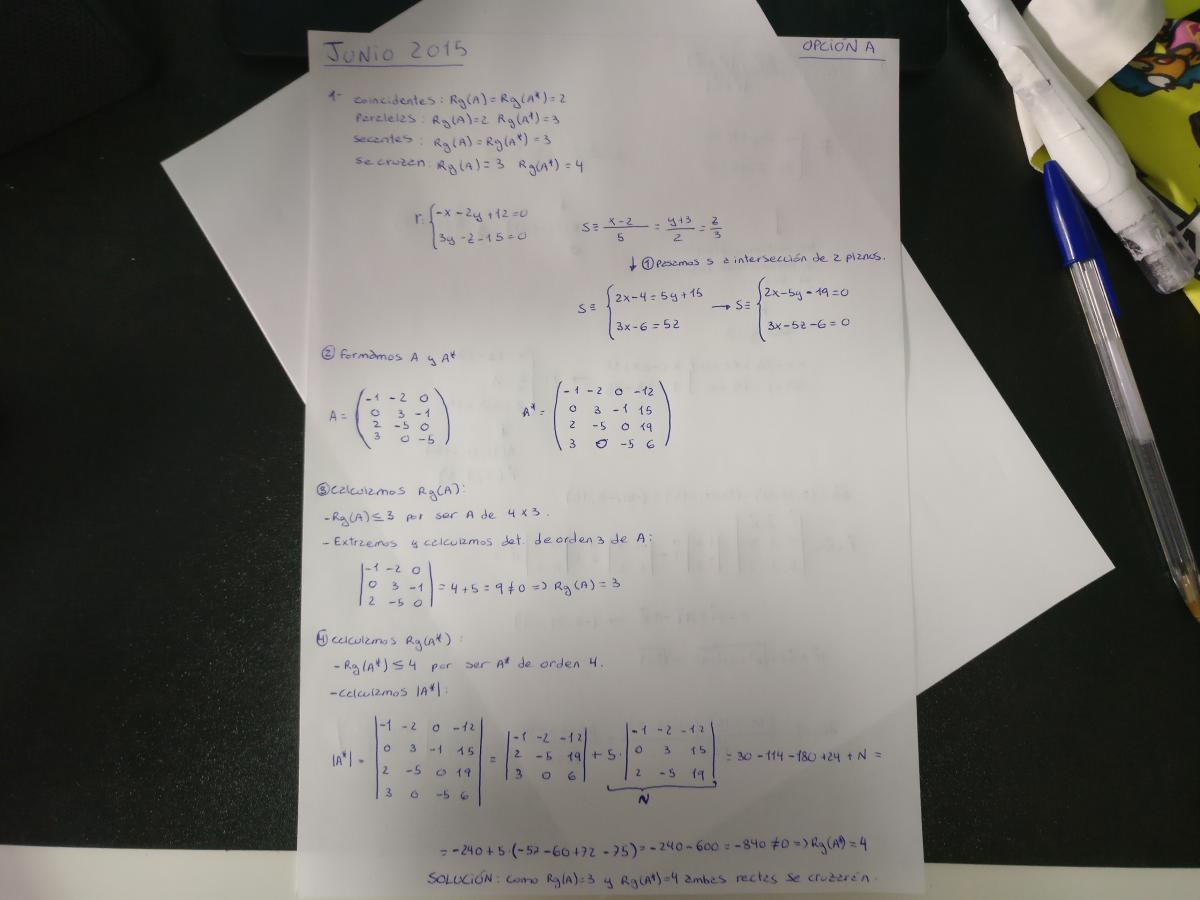 JUNIO 2015
OPCIÓN A
1- coincidentes: Rg(A)=Rg(A*)=2
Paralelas: Rg(A)=2 Rg(A*)=3
secantes: Rg(A)=Rg(A*)=3
se cruzan: Rg(A)=3 Rg(A*)=4
r: { -x-2y+12=0
3y-z-15=0
S≡ x-2/5 = y+3/2 = z/3
↓ ① Pasamos s a intersección de 2 planos.
S≡ { 2x-4=5y+15 → S≡ { 2x-5y-19=0
3x-6=5z 3x-5z-6=0
② Formamos A y A*
A = ( -1 -2 0
0 3 -1
2 -5 0
3 0 -5 )
A* = ( -1 -2 0 -12
0 3 -1 15
2 -5 0 19
3 0 -5 6 )
③ Calculamos Rg(A):
-Rg(A)≤3 por ser A de 4x3.
- Extraemos y calculamos det. de orden 3 de A:
| -1 -2 0
0 3 -1
2 -5 0 | = 4+5=9≠0 => Rg(A)=3
④ Calculamos Rg(A*):
-Rg(A*)≤4 por ser A* de orden 4.
-Calculamos |A*|:
|A*| = | -1 -2 0 -12
0 3 -1 15
2 -5 0 19
3 0 -5 6 | = | -1 -2 -12
2 -5 19
3 0 6 | + 5· | -1 -2 -12
0 3 15
2 -5 19 | = 30-114-180+24+N =
N
= -240+5·(-57-60+72-75)=-240-600=-840≠0=>Rg(A*)=4
SOLUCIÓN: Como Rg(A)=3 y Rg(A*)=4 ambas rectas se cruzarán.